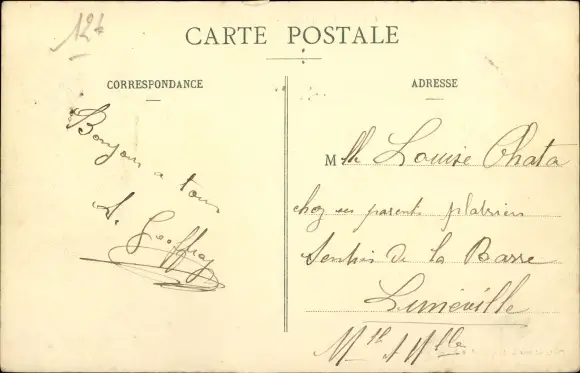 124
CARTE POSTALE
CORRESPONDANCE
Bonjour a tous
A. Geoffroy
ADRESSE
Mlle Louise Chata
chez ses parents platriers
Sentier de la Barre
Lunéville
Mthe & Mlle